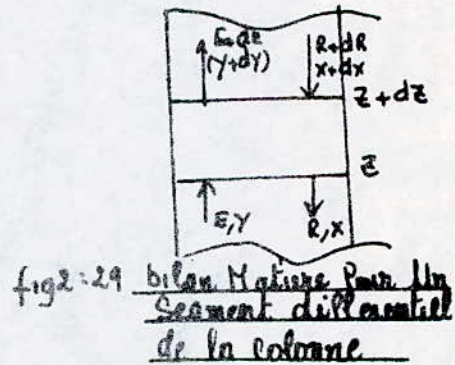 E+dE R+dR
(Y+dY) X+dX
Z+dZ
Z
E,Y R,X
fig2:29 bilan Matiere Pour Un
Segment differentiel
de la colonne